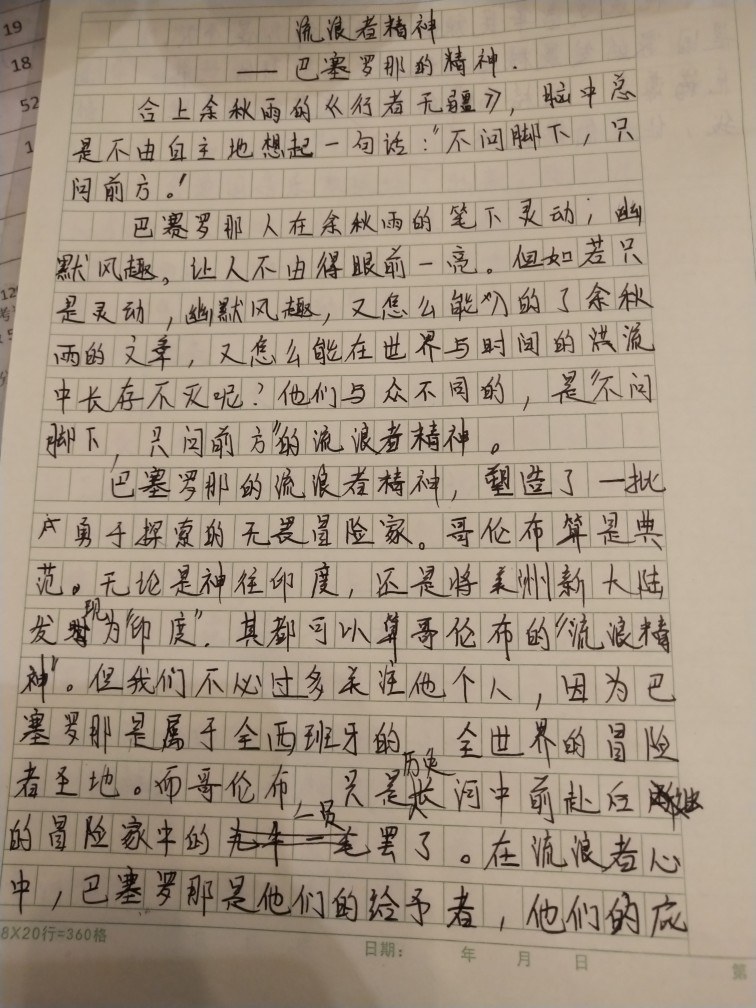 流浪者精神
——巴塞罗那的精神.
合上余秋雨的《行者无疆》，脑中总
是不由自主地想起一句话："不问脚下，只
问前方。"
巴塞罗那人在余秋雨的笔下灵动；幽
默风趣。让人不由得眼前一亮。但如若只
是灵动，幽默风趣，又怎么能入的了余秋
雨的文章，又怎么能在世界与时间的洪流
中长存不灭呢？他们与众不同的，是"不问
脚下，只问前方"的流浪者精神。
巴塞罗那的流浪者精神，塑造了一批
勇于探索的无畏冒险家。哥伦布算是典
范。无论是神往印度，还是将美洲新大陆
发现为"印度"．其都可以算哥伦布的"流浪精
神"。但我们不必过多关注他个人，因为巴
塞罗那是属于全西班牙的 全世界的冒险
者圣地。而哥伦布 只是历史长河中前赴后继
的冒险家中的一员罢了。在流浪者心
中，巴塞罗那是他们的给予者，他们的庇
8X20行=360格
日期： 年 月 日
第
19
18
52
1